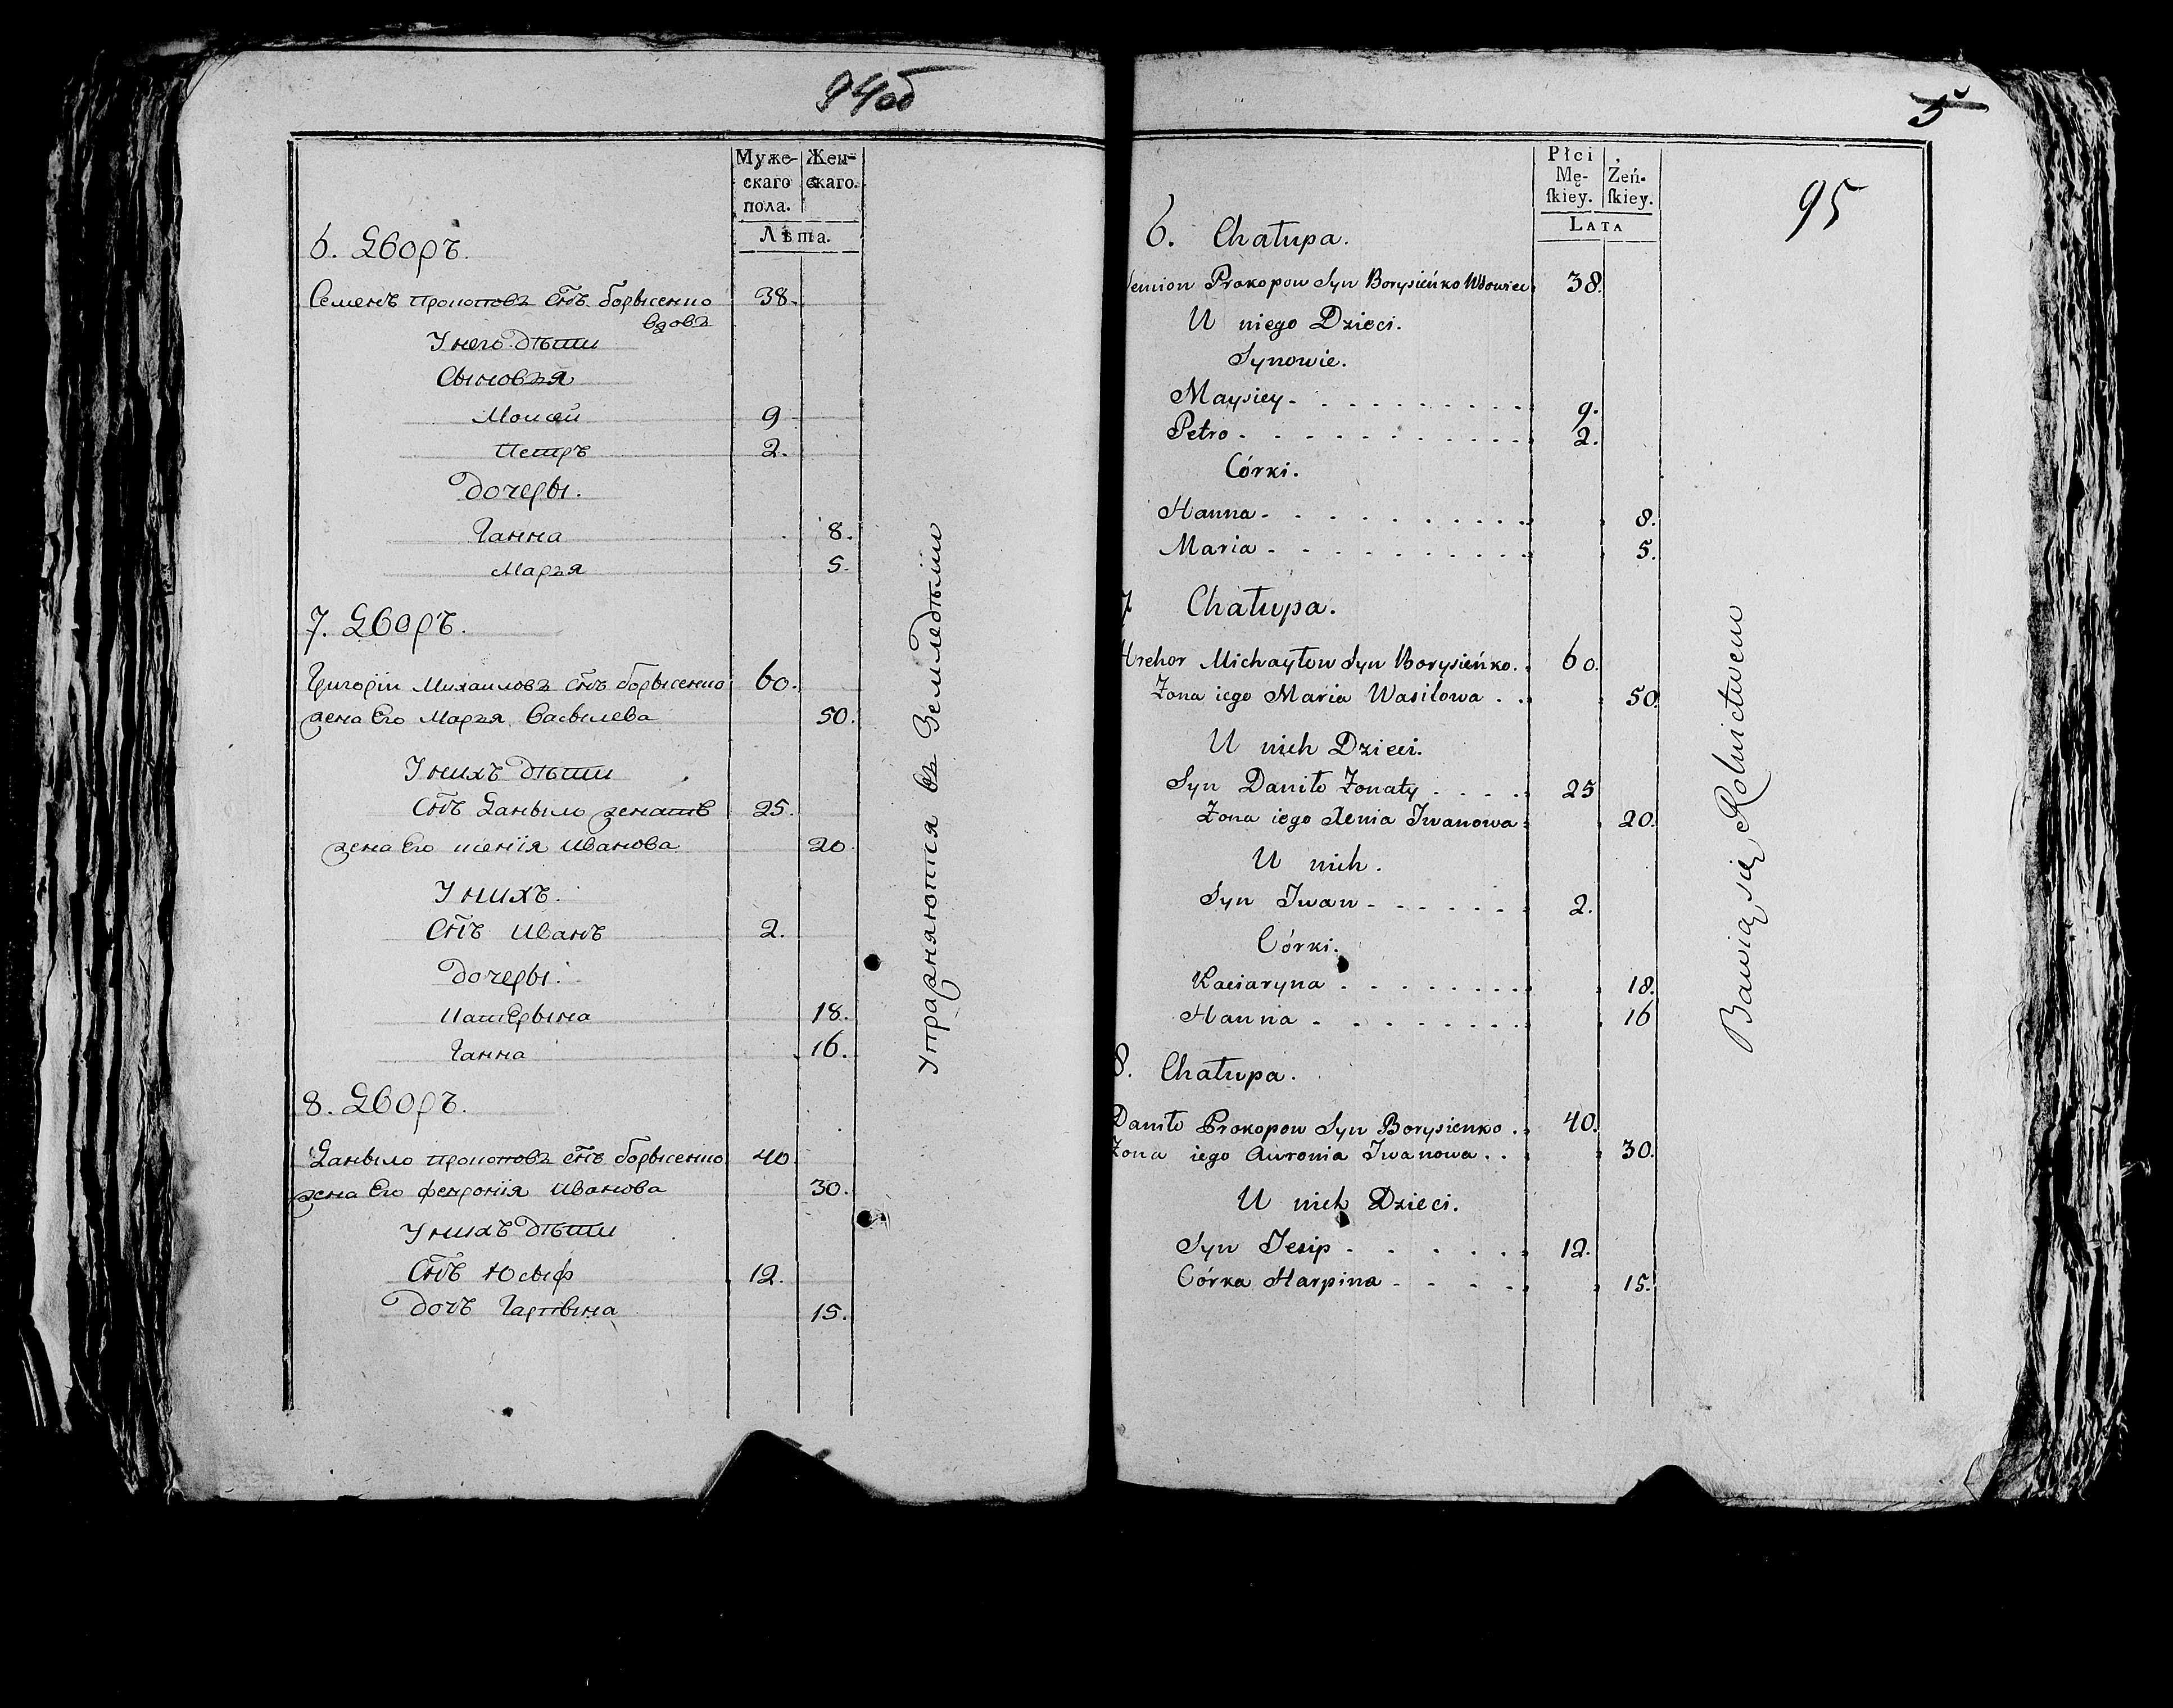 94об
Муже- Жен-
скаго скаго.
пола.
Лѣта.
6. Дворъ.
Семенъ Прокоповъ Снъ борысенко 38.
вдовъ
У него дѣти
Сыновъя
Моисей 9
Петръ 2.
Дочеры.
Ганна 8.
Маръя 5.
7. Дворъ.
Григорiи Михаиловъ Снъ борысенко 60.
жена Его Маръя Васылева 50.
У нихъ дѣти
Снъ Даныло женатъ 25.
жена Его ксенiя Иванова 20
У нихъ.
Снъ Иванъ 2.
Дочеры.
Катерына 18.
Ганна 16.
8. Дворъ.
Даныло прокоповъ снъ борысенко 40
жена Его февронiя Иванова 30.
У нихъ дѣти
Снъ Юсыф 12.
Дочъ Гарпына 15.
Упражняются въ Земледѣлiи
5
95
Płci
Mę- Żeń-
ſkiey. ſkiey.
LATA
6. Chałupa.
Semion Prokopow Syn Borysieńko Wdowiec 38.
U niego Dzieci.
Synowie.
Maysiey 9.
Petro 2.
Córki.
Hanna 8.
Maria 5.
7 Chałupa.
Hrehor Michayłow Syn Borysieńko 60.
Żona iego Maria Wasilowa 50.
U nich Dzieci.
Syn Daniło Żonaty 25
Żona iego Xenia Iwanowa 20.
U nich.
Syn Iwan 2.
Córki.
Kaciaryna 18.
Hanna 16
8. Chałupa.
Daniło Prokopow Syn Borysienko 40.
Żona iego Auronia Iwanowa 30.
U nich Dzieci.
Syn Iesip 12.
Córka Harpina 15.
Bawią się Rolnictwem